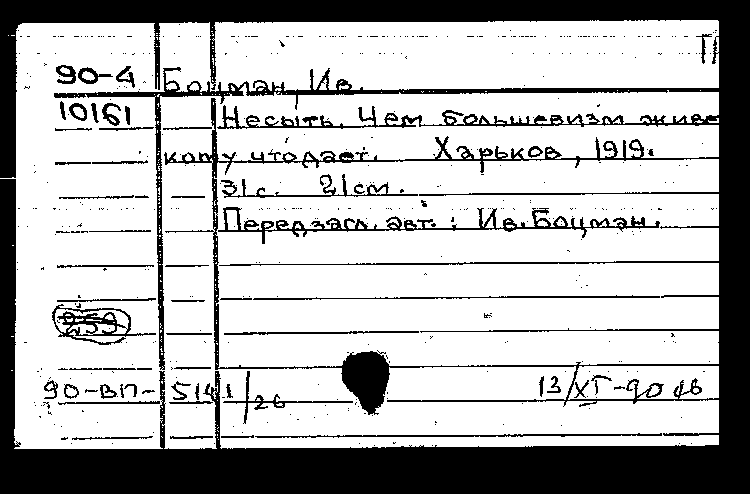 П
90-4 Боцман, Ив.
10161 Несыть. Чем большевизм живе
кому что дает. Харьков, 1919.
31с. 21см.
Перед загл. авт.: Ив. Боцман.
259
90-ВП- 5141/26 13/XI-90